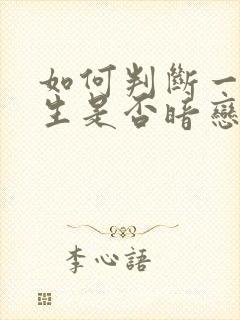 如何判斷一
生是否暗戀
李心語